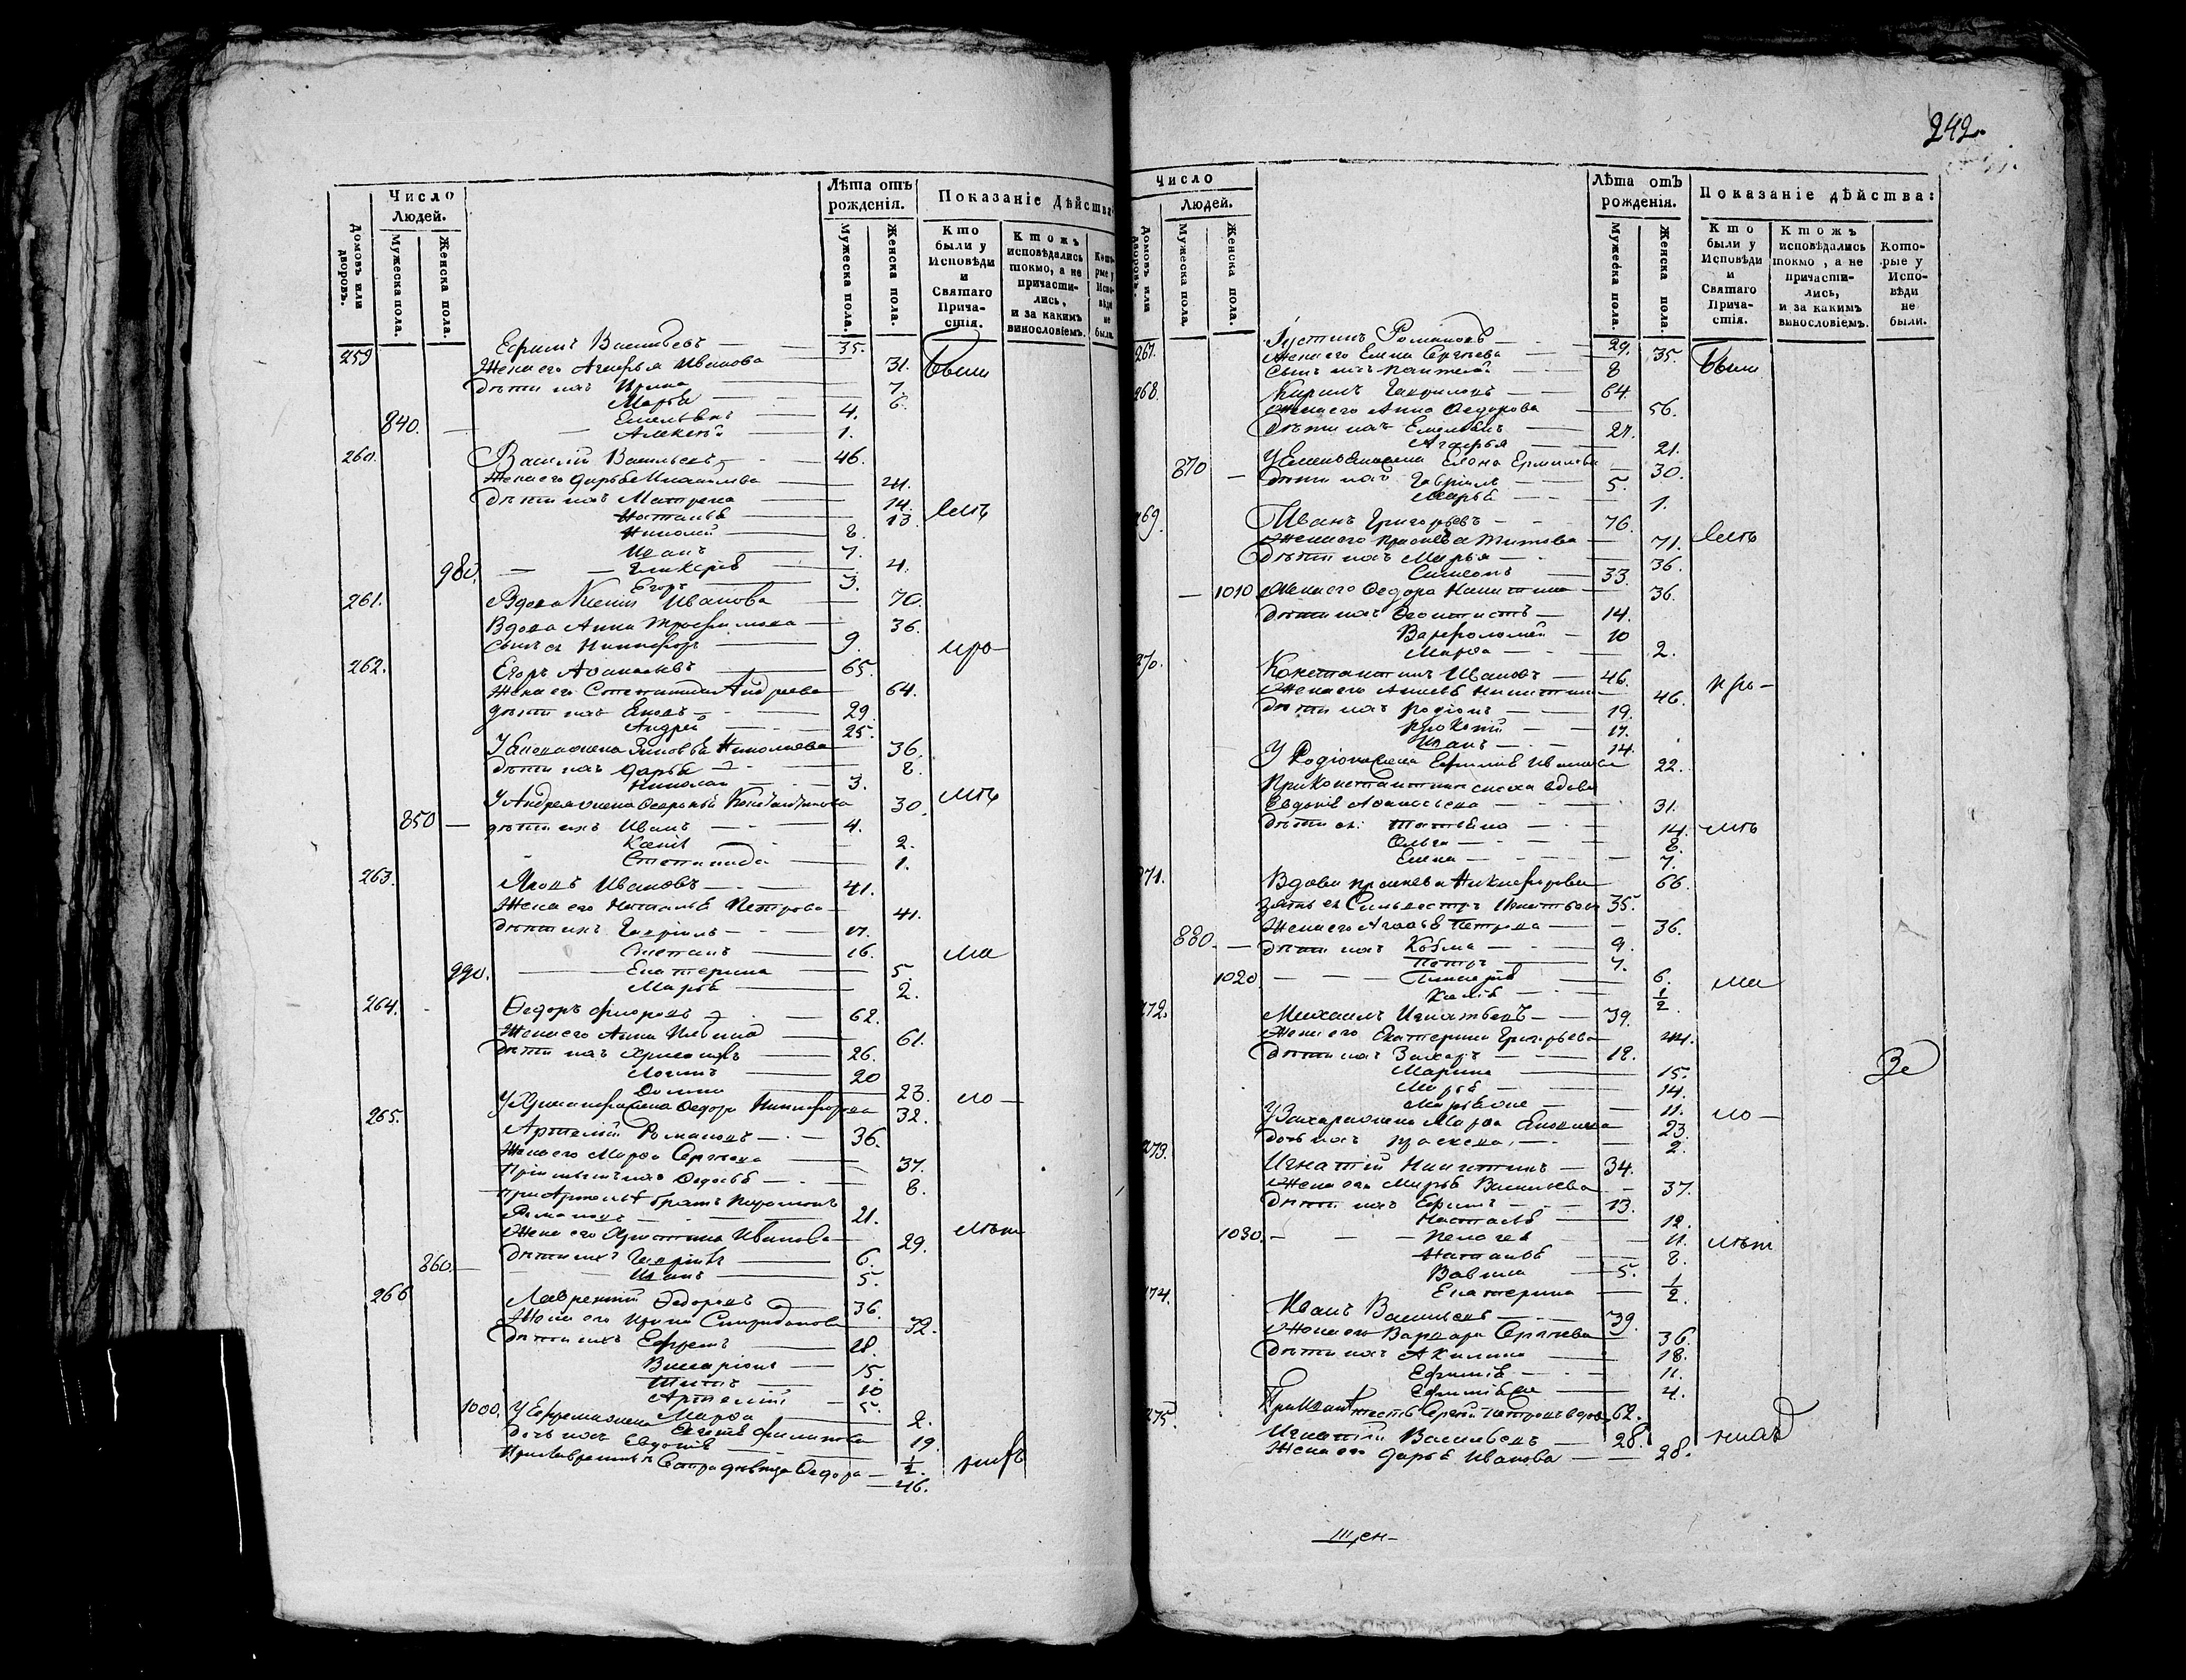 242.
Домовъ или дворовъ.
Число Людей.
Мужеска пола.
Женска пола.
Лѣта отъ рожденія.
Мужеска пола.
Женска пола.
Показаніе Дѣйства:
Кто были у Исповѣди и Святаго Прича-стія.
Ктожъ исповѣдались токмо, а не причасти-лись, и за какимъ винословіемъ.
Кото-рые у Испо-вѣди не были.
259 Ефимъ Васильевъ 35. Были
Жена его Агафья Иванова 31.
дѣти ихъ Ирина 7.
Марья 6.
Емельянъ 4.
840. Алексѣй 1.
260. Василій Васильевъ 46.
Жена его Дарья
дѣти ихъ Матрена 14.
Наталья 13
Николай 8.
Иванъ 7.
980. Гликерія 4.
Егоръ 3.
261. Вдова Ксенія Иванова 70.
Вдова Анна Трофимова 36.
сынъ ея Никифоръ 9.
262. Егоръ Аѳанасьевъ 65.
Жена его Степанида Андреева 64.
дѣти ихъ Яковъ 29.
Андрей 25.
У Якова жена Зиновья Николаева 36.
дѣти ихъ Дарья 8.
Николай 3.
У Андрея жена Константинова 30.
850 дѣти ихъ Иванъ 4.
Ксенія 2.
Степанида 1.
263. Яковъ Ивановъ 41.
Жена его Наталья Петрова 41.
дѣти ихъ Гавріилъ 17.
Степанъ 16.
990. Екатерина 5.
Марья 2.
264. Ѳедоръ 62.
Жена его Анна 61.
дѣти ихъ Хрисанфъ 26.
Логинъ 20
Домна 23.
У Хрисанфа жена Ѳедора Никифорова 32.
265. Артемій Романовъ 36.
Жена его Марѳа Сергѣева 37.
8.
При Артемьѣ братъ Парамонъ
Романовъ 21.
Жена его Христина Иванова 29.
860. дѣти ихъ Гавріилъ 6.
Иванъ 5.
266 Лаврентій Ѳедоровъ 36.
Жена его Ирина Спиридонова 32.
дѣти ихъ Ефремъ 18.
Виссаріонъ 15.
Титъ 10
Артемій 5.
1000. Марѳа 2.
У Ефрема жена Евгенія Филипова 19.
дочь ихъ Евдокія ½.
При Лаврентьѣ Ѳедора 46.
Число Людей.
Домовъ или дворовъ.
Мужеска пола.
Женска пола.
Лѣта отъ рожденія.
Мужеска пола.
Женска пола.
Показаніе дѣйства:
Кто были у Исповѣди и Святаго Прича-стія.
Ктожъ исповѣдались токмо, а не причасти-лись, и за какимъ винословіемъ.
Кото-рые у Испо-вѣди не были.
267. Іустинъ Романовъ 29. Были
Жена его Елена Сергѣева 35.
Сынъ ихъ Пантелей 8
268. Кирилъ Гавриловъ 64.
Жена его Анна Ѳедорова 56.
дѣти ихъ Емельянъ 27.
Агафья 21.
870 У Емельяна жена Елена Ермилова 30.
дѣти ихъ Гавріилъ 5.
Марья 1.
269. Иванъ Григорьевъ 76.
Жена его Прасковья Титова 71.
дѣти ихъ Марья 36.
Симеонъ 33.
1010 Жена его Ѳедора Никитина 36.
дѣти ихъ Ѳеоктистъ 14.
Варфоломей 10
Марѳа 2.
270. Константинъ Ивановъ 46.
Жена его Никитина 46.
дѣти ихъ Родіонъ 19.
Прокопій 17.
Иванъ 14.
У Родіона жена Ефимія Иванова 22.
При Константинѣ сноха вдова
Евдокія Аѳанасьева 31.
дѣти ея: Татьяна 14.
Ольга 8.
Елена 7.
271. Вдова Прасковья Никифорова 66.
зять ея Сильвестръ Игнатьевъ 35.
Жена его Агафья Петрова 36.
880. дѣти ихъ Козма 9.
Петръ 7.
1020 Гликерія 6.
Ксенія ½.
272. Михаилъ Игнатьевъ 39.
Жена его Екатерина Григорьева 44.
дѣти ихъ Захаръ 18.
Марина 15.
Марья 14.
Марья 11.
У Захара жена Марѳа Яковлева 23.
дочь ихъ 2.
273. Игнатій Никитинъ 34.
Жена его Марья Васильева 37.
дѣти ихъ Ефимъ 13.
12.
1030. Пелагея 11.
Наталья 8.
Вавила 5.
Екатерина ½.
274. Иванъ Васильевъ 39.
Жена его Варвара Сергѣева 36.
дѣти ихъ Акилина 18.
Ефимія 11.
Ефимія 4.
При Иванѣ тесть Сергѣй Петровъ вдовъ 62.
275. Игнатій Васильевъ 28.
Жена его Дарья Иванова 28.